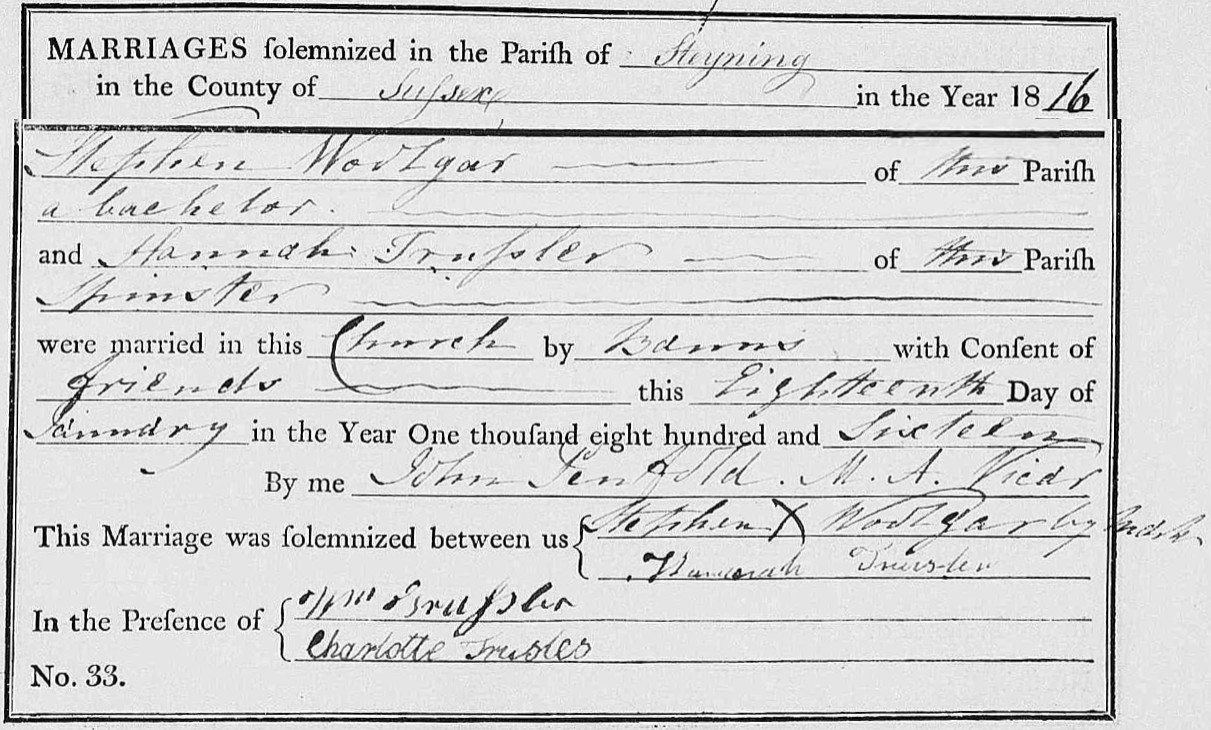 MARRIAGES ſolemnized in the Pariſh of Steyning
in the County of Suſsex in the Year 1816
Stephen Woolgar of this Pariſh
a bachelor.
and Hannah Truſsler of this Pariſh
Spinster
were married in this Church by Banns with Conſent of
friends this Eighteenth Day of
January in the Year One thouſand eight hundred and Sixteen
By me John Penfold. M. A. Vicar
This Marriage was ſolemnized between us Stephen X Woolgar by Mark
Hannah Trusler
In the Preſence of Wm Truſsler
Charlotte Trusler
No. 33.